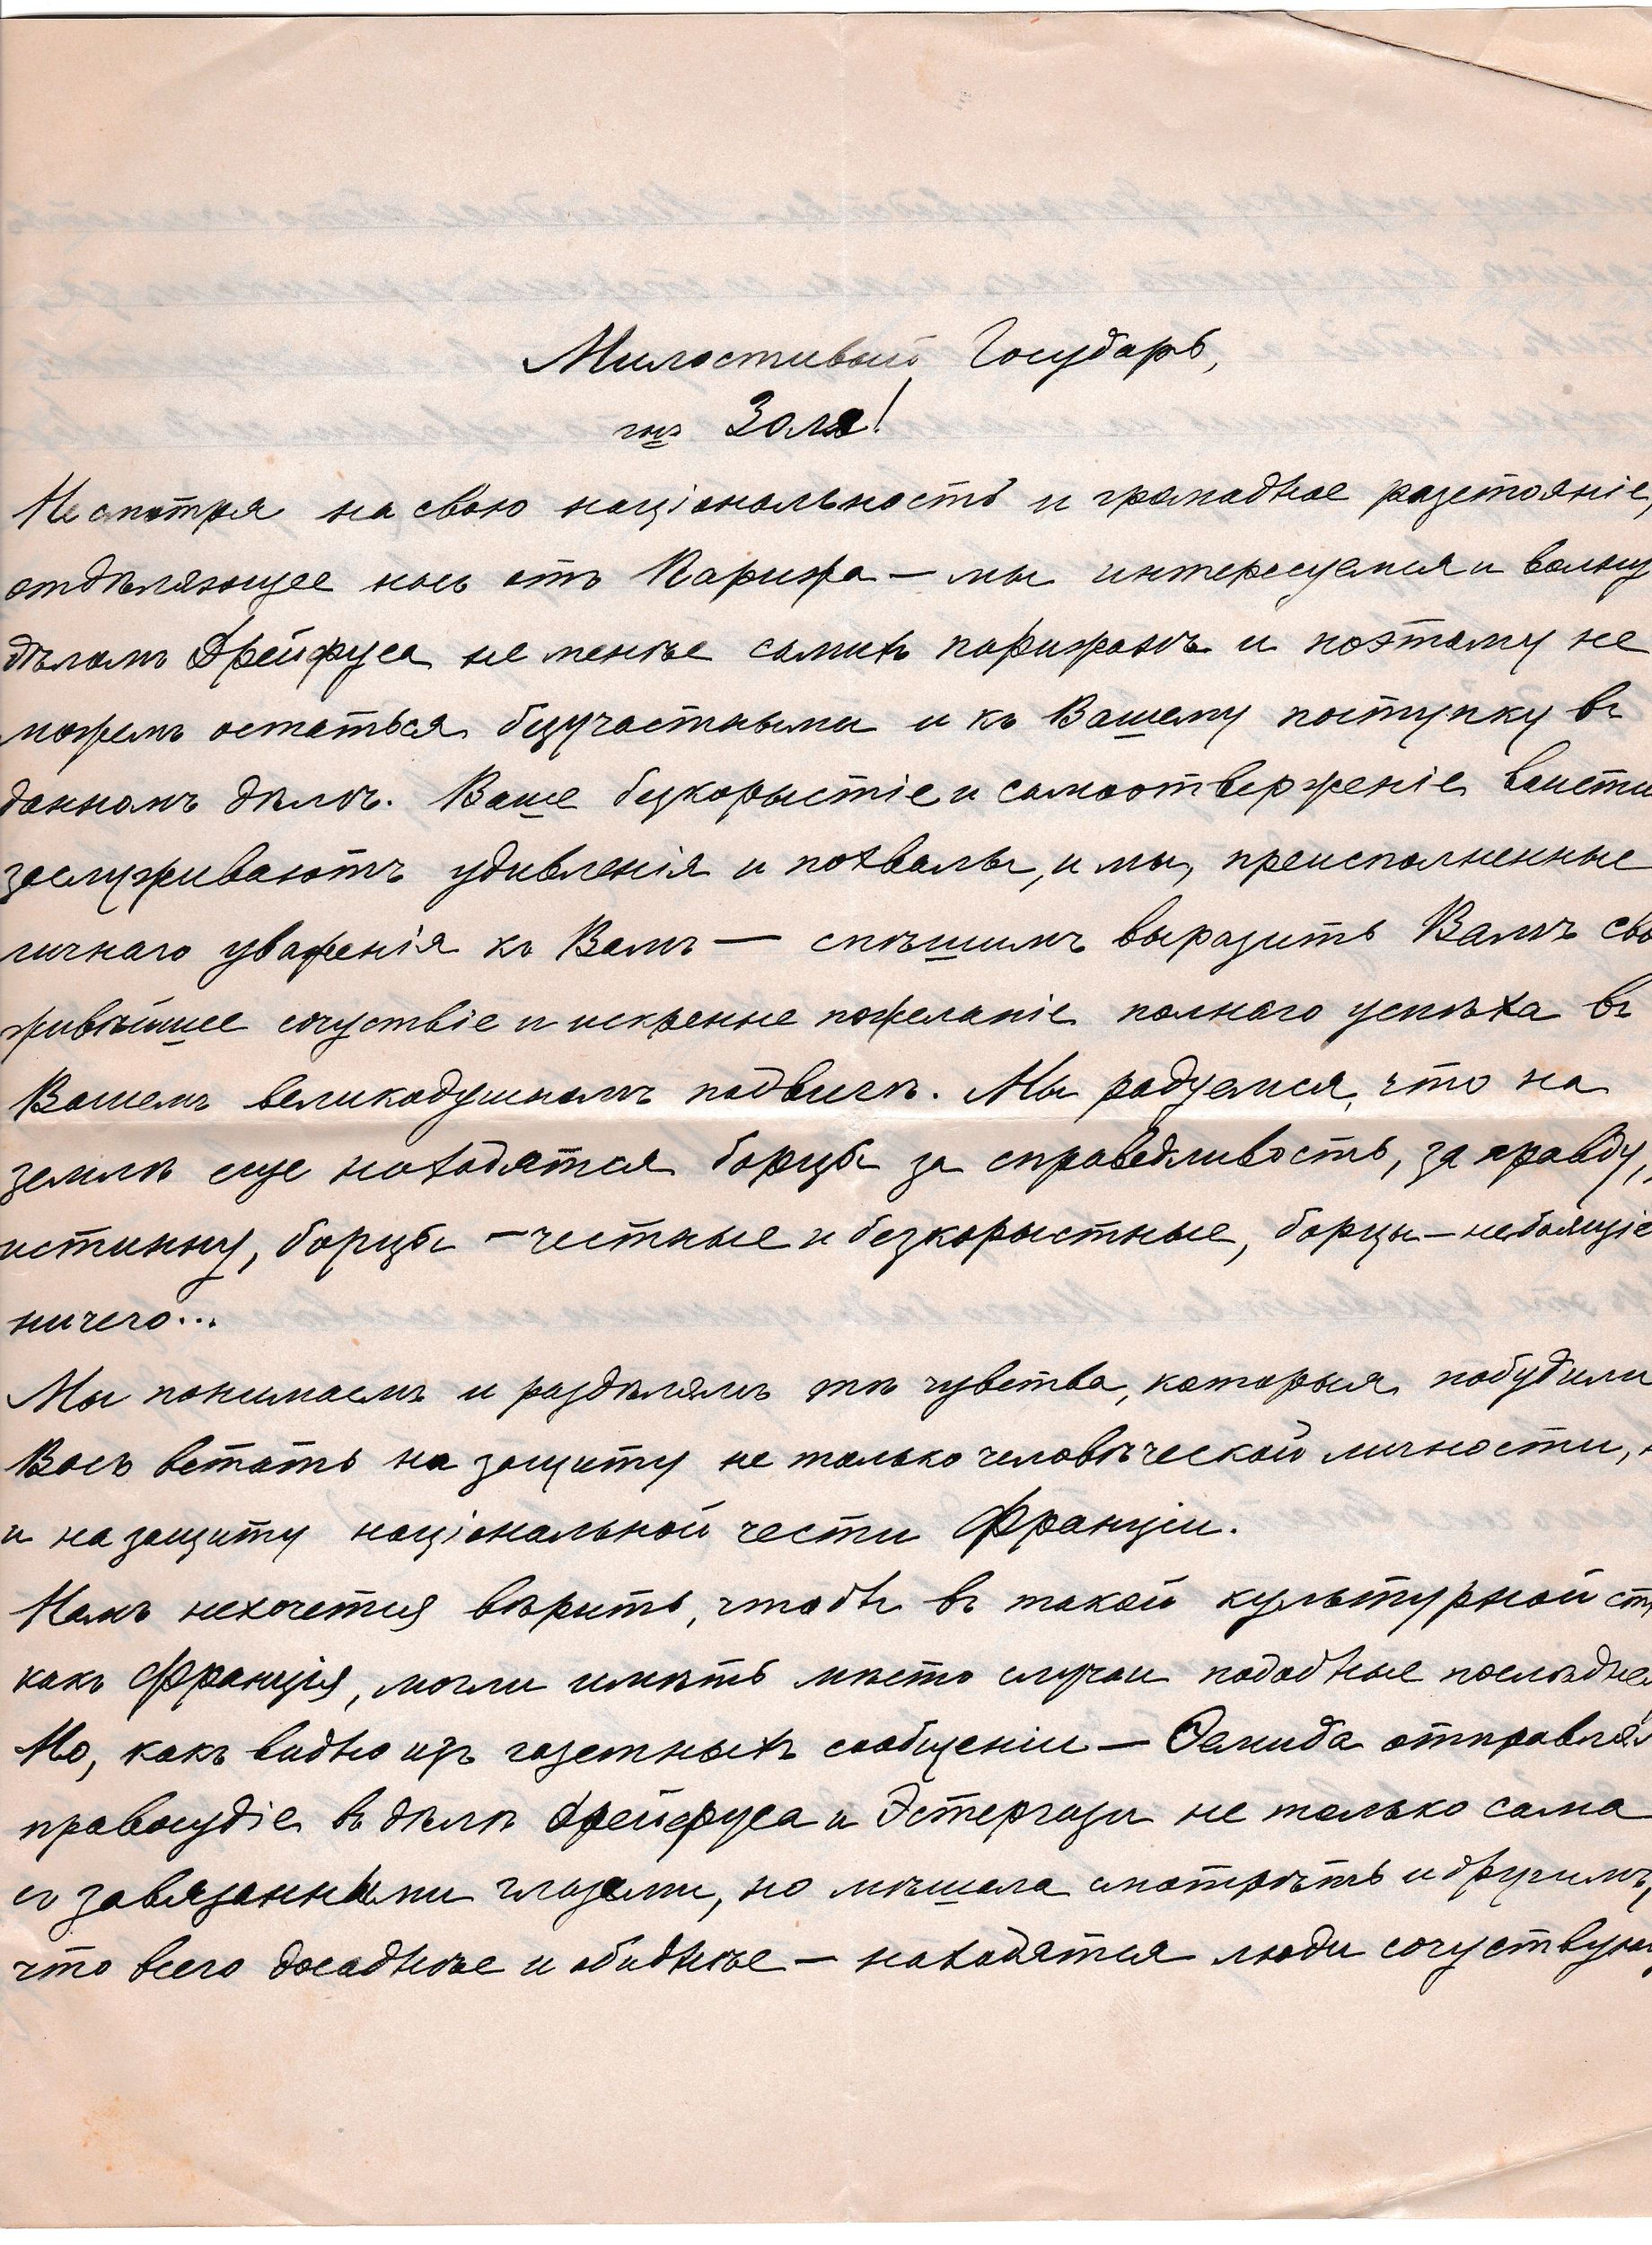 Милостивый Государь,
гнъ Золя!
Несмотря на свою національность и громадное разстояніе,
отдѣляющее насъ отъ Парижа — мы интересуемся и волну
дѣломъ Дрейфуса не менѣе самихъ парижанъ и поэтому не
можемъ остаться безучастными и къ Вашему поступку въ
данномъ дѣлѣ. Ваше безкорыстіе и самоотверженіе воисти
заслуживаютъ удивленія и похвалы, и мы, преисполненные
личнаго уваженія къ Вамъ — спѣшимъ выразить Вамъ сво
живѣйшее сочуствіе и искренне пожеланіе полнаго успѣха въ
Вашемъ великодушномъ подвигѣ. Мы радуемся, что на
землѣ еще находятся борцы за справедливость, за правду,
истинну, борцы — честные и безкорыстные, борцы — небоящіе
ничего...
Мы понимаемъ и раздѣлямъ тѣ чувства, которыя побудили
Васъ встать на защиту не только человѣческой личности, н
и на защиту національной чести Франціи.
Намъ нехочется вѣрить, чтобы въ такой культурной ст
какъ Франція, могли имѣть мѣсто случаи подобные послѣдне
Но, какъ видно изъ газетныхъ сообщеніи — Фемида отправля
правосудіе въ дѣлѣ Дрейфуса и Эстергази не только сама
съ завязанными глазами, но мѣшала смотрѣть и другимъ,
что всего досаднѣе и обиднѣе — находятся люди сочуствую